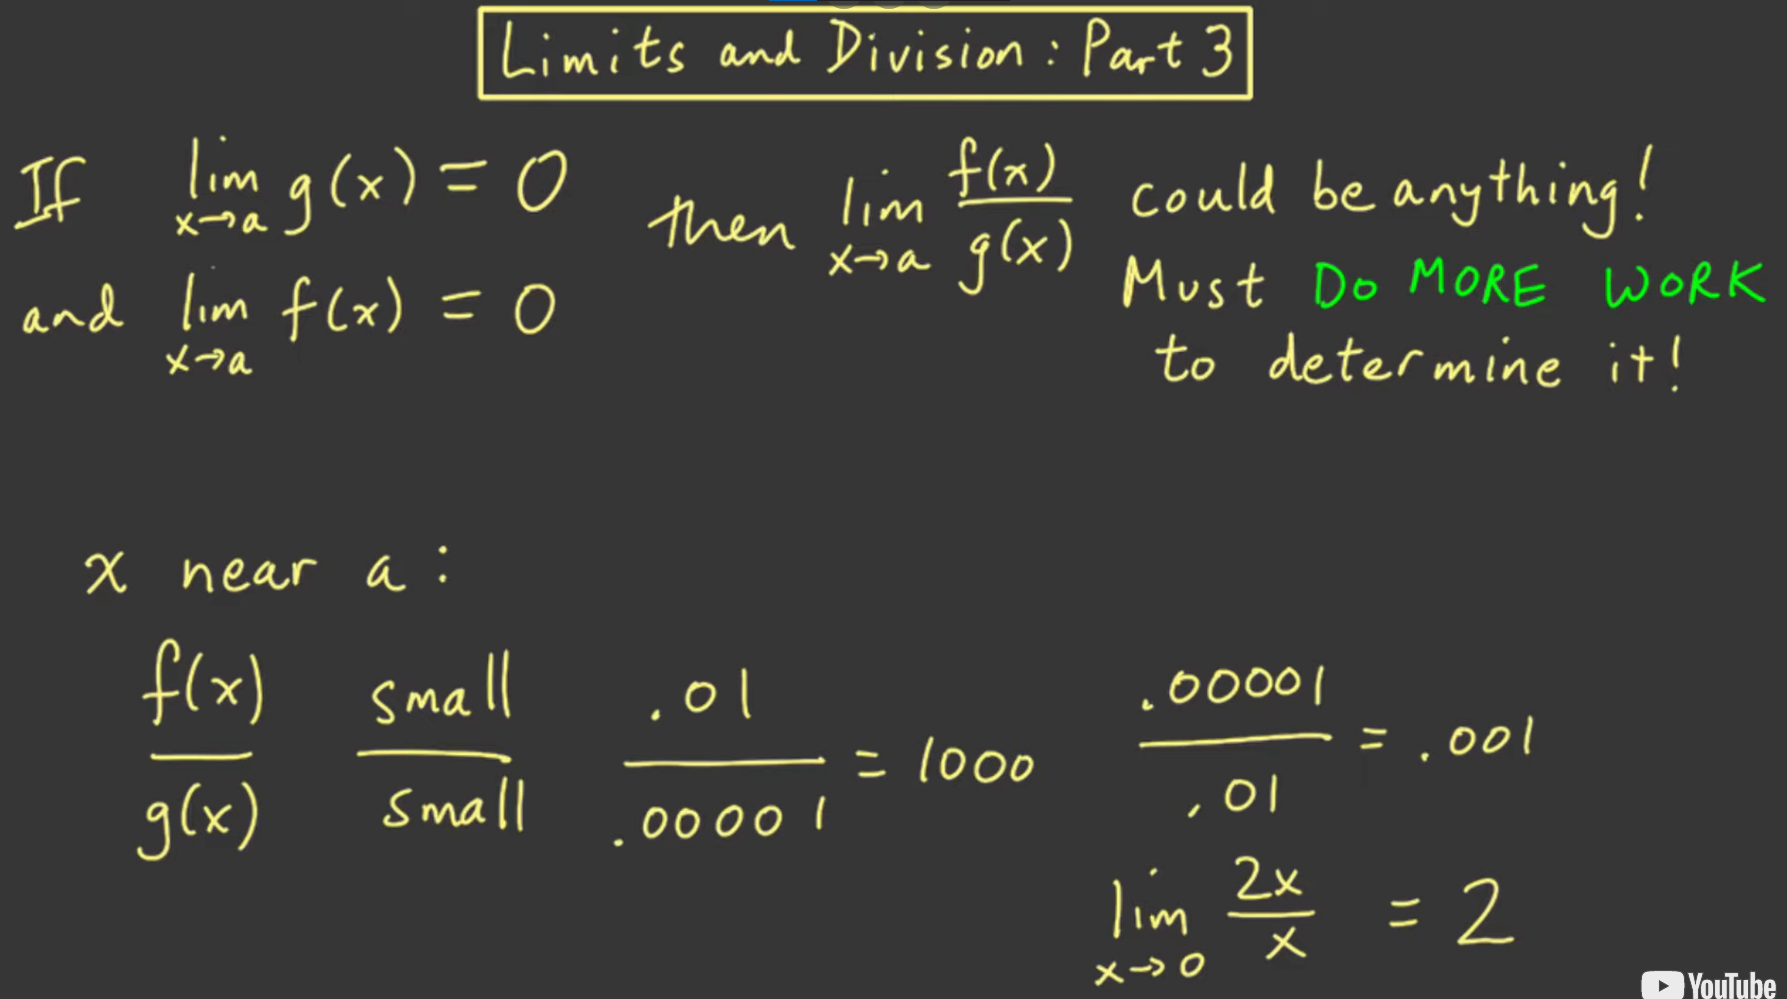 Limits and Division: Part 3
If lim x→a g(x) = 0
and lim x→a f(x) = 0
then lim x→a f(x)/g(x)
could be anything!
Must DO MORE WORK
to determine it!
x near a:
f(x)/g(x) small/small .01/.00001 = 1000 .00001/.01 = .001
lim x→0 2x/x = 2
YouTube